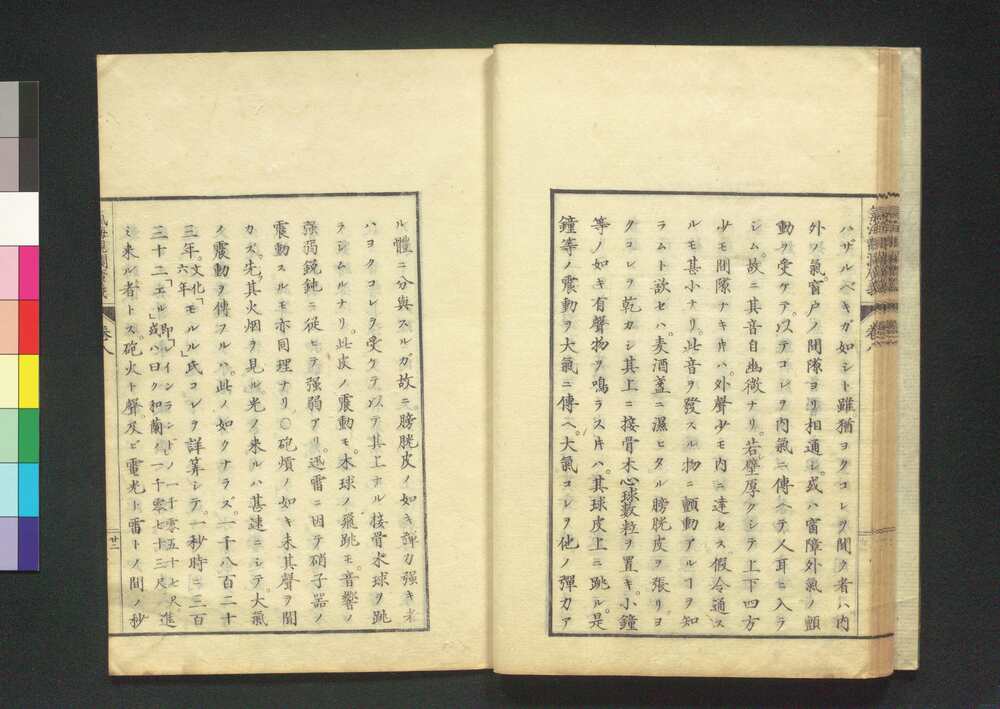 ハザルベキガ如シト雖。猶ヨクコレヲ聞ク者ハ内
外ヲ氣。窗戸ノ間隙ヨリ相通シ。或ハ窗障外氣ノ顫
動ヲ受ケテ。以テコレヲ内氣ニ傳ヘテ人耳ニ入ラ
シム。故ニ其音自幽微ナリ。若壁厚クシテ上下四方
少モ間隙ナキ片ハ。外聲少モ内ニ達セス。假令通ス
ルモ甚小ナリ。此音ヲ發スル物ニ顫動アルヿヲ知
ラムト欲セハ。麦酒盖ニ濕ヒタル膀胱皮ヲ張リヨ
クコレヲ乾カシ其上ニ接骨木心球數粒ヲ置キ。小鐘
等ノ如キ有聲物ヲ鳴ラス片ハ。其球皮上ニ跳ル。是
鐘等ノ震動ヲ大氣ニ傳ヘ。大氣コレヲ他ノ彈力ア
ル體ニ分與スルガ故ニ。膀胱皮ノ如キ彈力強キ者
ハヨクコレヲ受ケテ。以テ其上ナル接骨木球ヲ跳
ラシムルナリ。此皮ノ震動モ。木球ノ飛跳モ。音響ノ
强弱鋭鈍ニ從ヒテ强弱アリ。迅雷ニ因テ硝子器ノ
震動スルモ亦同理ナリ〇砲熕ノ如キ未其聲ヲ聞
カズ。先其火烟ヲ見ル光ノ来ルハ甚速ニシテ。大氣
ノ震動ヲ傳フルハ。此ノ如クナラズ。一千八百二十
三年。文化六年「モルル」氏コレヲ詳筭シテ。一秒時ニ三百
三十二エル即「ルインランド」ノ一千零五十七尺或ハ曰ク和蘭ノ一千零七十三尺進
ミ来ル者トス。砲火ト聲及ビ電光ト雷トノ間ノ秒
卷八
卷八
廿二